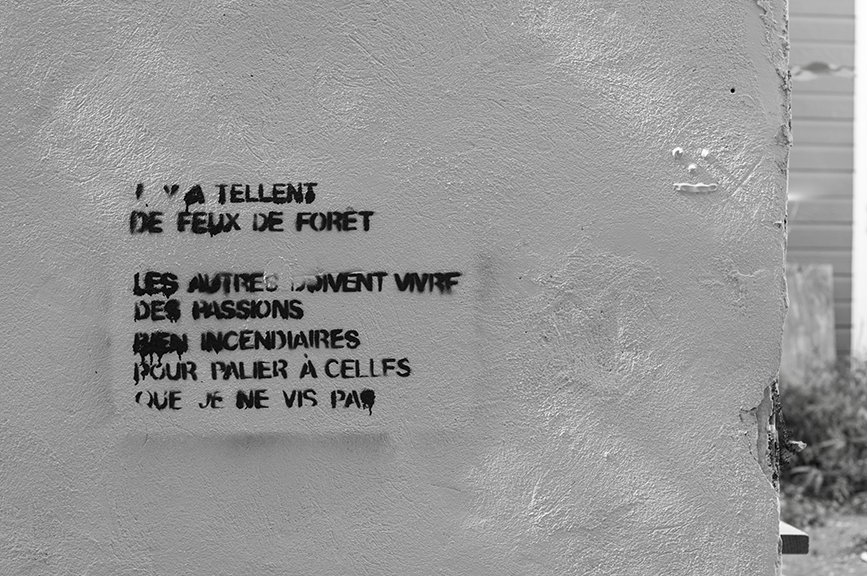 IL Y A TELLENT
DE FEUX DE FORÊT
LES AUTRES DOIVENT VIVRE
DES PASSIONS
BIEN INCENDIAIRES
POUR PALIER À CELLES
QUE JE NE VIS PAS